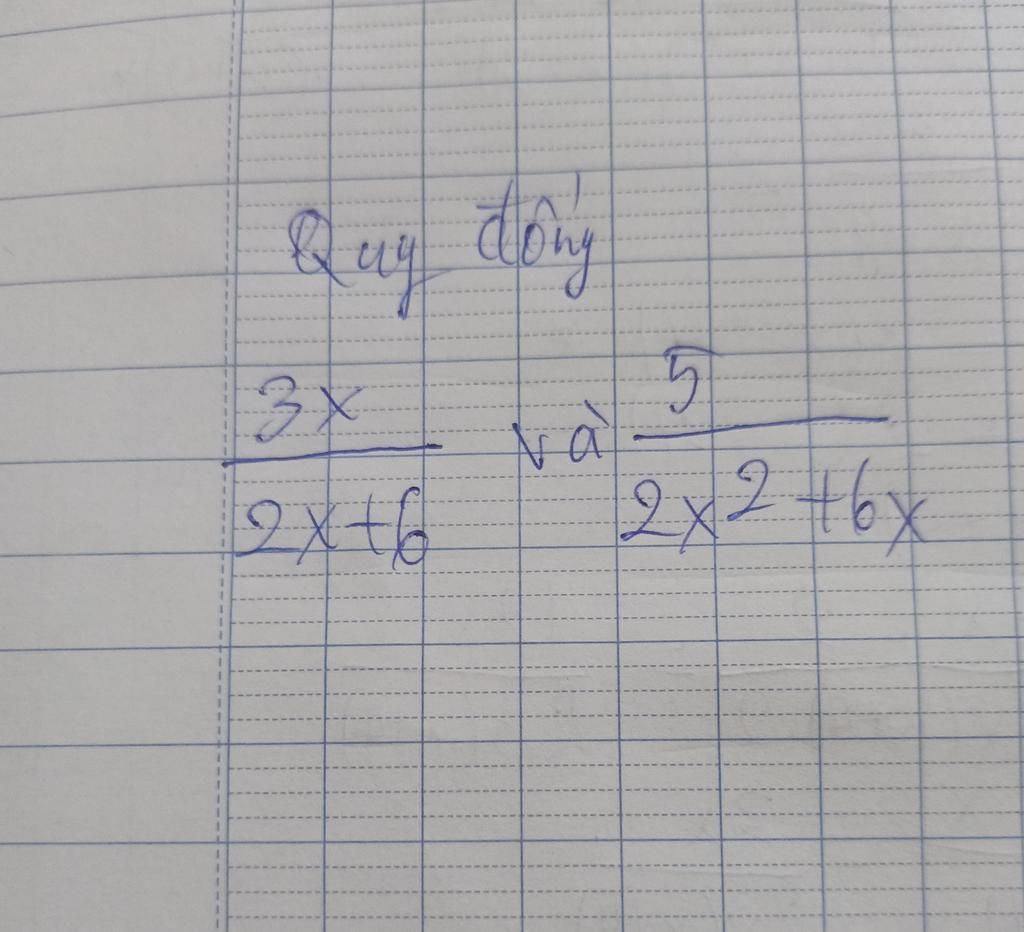 Quy đống
3x/2x+6 và 5/2x²+6x